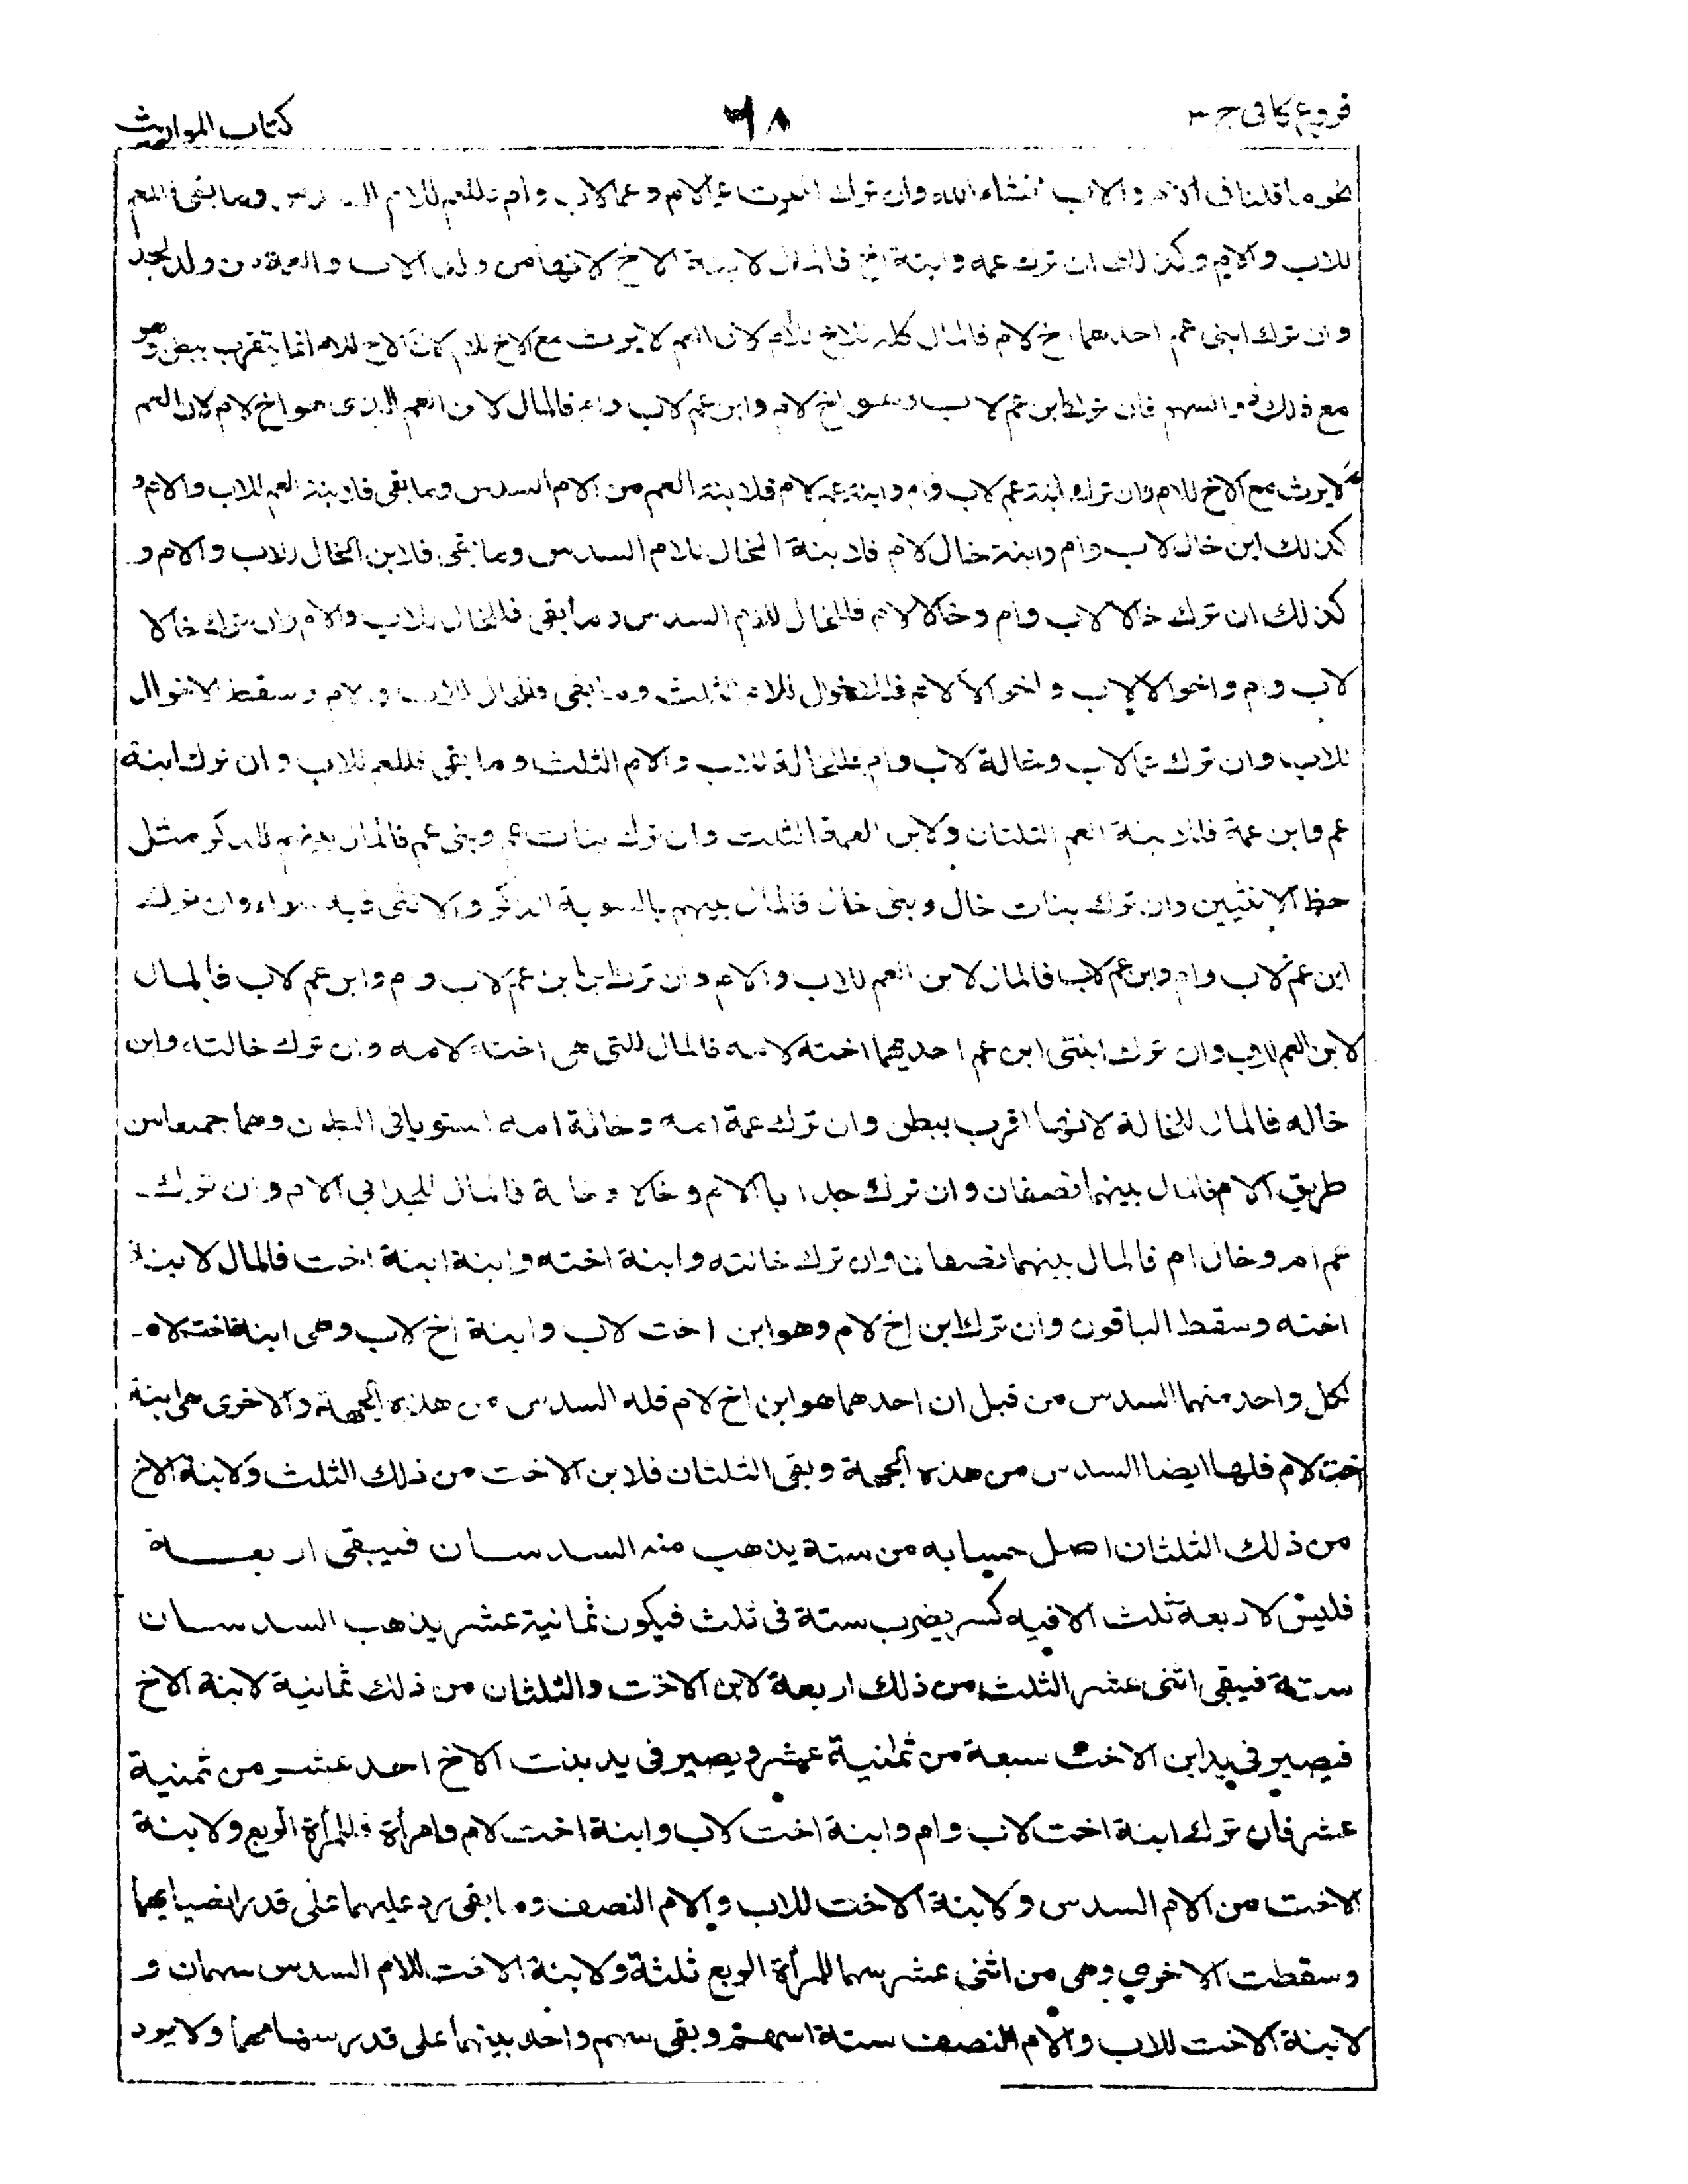 فروع كافى ج ٣
٦٨
كتاب المواريث
نحو ما قلنا فى والاب انشاء الله وان ترك الميت عما لام وعما لاب وام فللعم للام السدس وما بقى فللعم
للاب والام وكذلك ان ترك عمه وابنة اخ فالمال لابنة الاخ لانها من ولد الاب والعمة من ولد الجد
وان ترك ابنى عم احدهما اخ لام فالمال كله للاخ للام لان العم لا يرث مع الاخ للام لان الاخ للام انما يتقرب ببطن وهو
مع ذلك ذو السهم فان ترك ابن عم لاب وهو اخ لام وابن عم لاب وام فالمال لابن العم الذى هو اخ لام لان العم
لا يرث مع الاخ للام وان ترك ابنة عم لاب وام وابنة عم لام فلابنة العم من الام السدس وما بقى فلابنة العم للاب والام و
كذلك ابن خال لاب وام وابنة خال لام فلابنة الخال للام السدس وما بقى فلابن الخال للاب والام و
كذلك ان ترك خالا لاب وام وخالا لام فللخال للام السدس وما بقى فللخال للاب والام وان ترك خالا
لاب وام واخوالا لاب واخوالا لام فللاخوال للام الثلث وما بقى فللخال للاب والام وسقط الاخوال
للاب وان ترك عما لاب وخالة لاب وام فللخالة للاب والام الثلث وما بقى فللعم للاب وان ترك ابنة
عم وابن عمة فلابنة العم الثلثان ولابن العمة الثلث وان ترك بنات عم وبنى عم فالمال بينهم للذكر مثل
حظ الانثيين وان ترك بنات خال وبنى خال فالمال بينهم بالسوية الذكر والانثى فيه سواء وان ترك
ابن عم لاب وام وابن عم لاب فالمال لابن العم للاب والام وان ترك ابن ابن عم لاب وام وابن عم لاب فالمال
لابن العم للاب وان ترك ابنتى ابن عم احديهما اخته لامه فالمال للتى هى اخته لامه وان ترك خالته وابن
خاله فالمال للخالة لانها اقرب ببطن وان ترك عمة امه وخالة امه استويا فى البطن وهما جميعا من
طريق الام فالمال بينهما نصفان وان ترك جدا با الام وخالا وخالة فالمال للجد ابى الام وان ترك
عم ام وخال ام فالمال بينهما نصفان وان ترك خالته وابنة اخته وابنة ابنة اخت فالمال لابنة
اخته وسقط الباقون وان ترك ابن اخ لام وهو ابن اخت لاب وابنة اخ لاب وهى ابنة اخت لام
لكل واحد منهما السدس من قبل ان احدهما هو ابن اخ لام فله السدس من هذه الجهة والاخرى هى ابنة
اخت لام فلها ايضا السدس من هذه الجهة وبقى الثلثان فلابن الاخت من ذلك الثلث ولابنة الاخ
من ذلك الثلثان اصل حسابه من ستة يذهب منه السدسان فيبقى اربعة
فليس لاربعة ثلث الا فيه كسر يضرب ستة فى ثلث فيكون ثمانية عشر يذهب السدسان
ستة فيبقى اثنى عشر الثلث من ذلك اربعة لابن الاخت والثلثان من ذلك ثمانية لابنة الاخ
فيصير فى يد ابن الاخت سبعة من ثمانية عشر ويصير فى يد بنت الاخ احد عشر من ثمنية
عشر فان ترك ابنة اخت لاب وام وابنة اخت لاب وابنة اخت لام وامرأة فللمرأة الربع ولابنة
الاخت من الام السدس ولابنة الاخت للاب والام النصف وما بقى رد عليهما على قدر انصبائهما
وسقطت الاخرى وهى من اثنى عشر سهما للمرأة الربع ثلثة ولابنة الاخت للام السدس سهمان و
لابنة الاخت للاب والام النصف ستة اسهم وبقى سهم واحد بينهما على قدر سهامهما ولا يرد